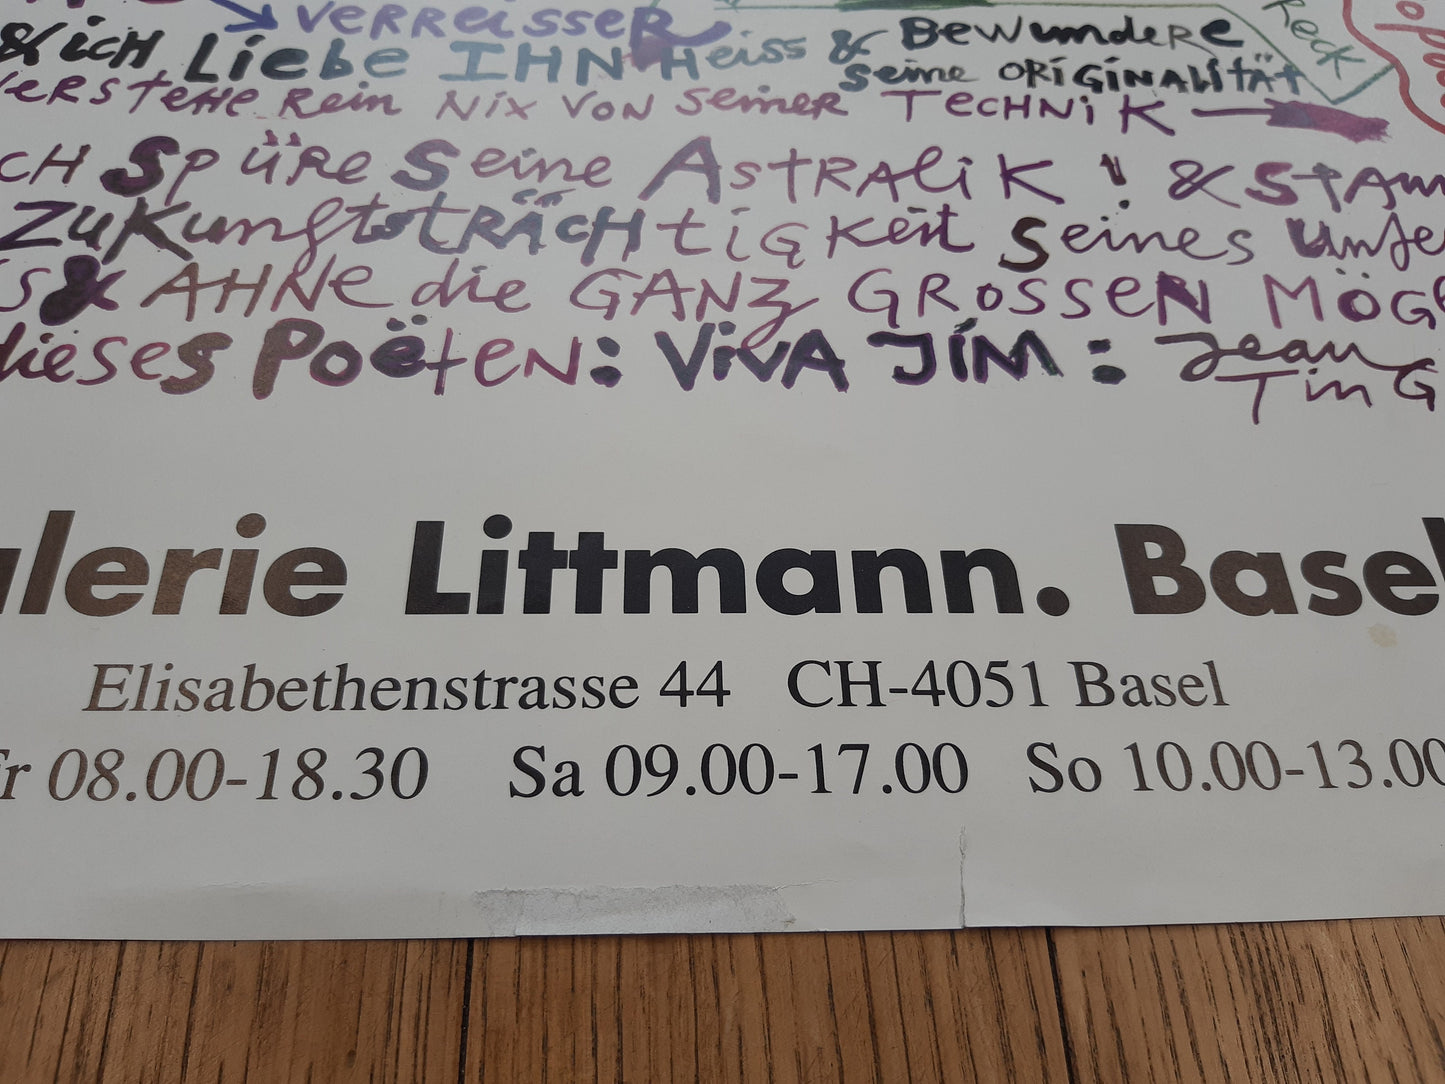 VERREISSER
& iCH Liebe IHN Heiss & BewUndeRe
seine ORiGiNALiTÄT
VERSTEHE Rein NiX VON seineR TECHNiK
CH SpüRe Seine ASTRALiK ! & STAUN
ZuKunftsTRÄCHtiGKeit Seines Unte
s & AHNe die GANZ GROSSEN MÖG
dieses PoëteN : ViVA JiM : Jean
TinG
alerie Littmann. Basel
Elisabethenstrasse 44 CH-4051 Basel
Fr 08.00-18.30 Sa 09.00-17.00 So 10.00-13.00